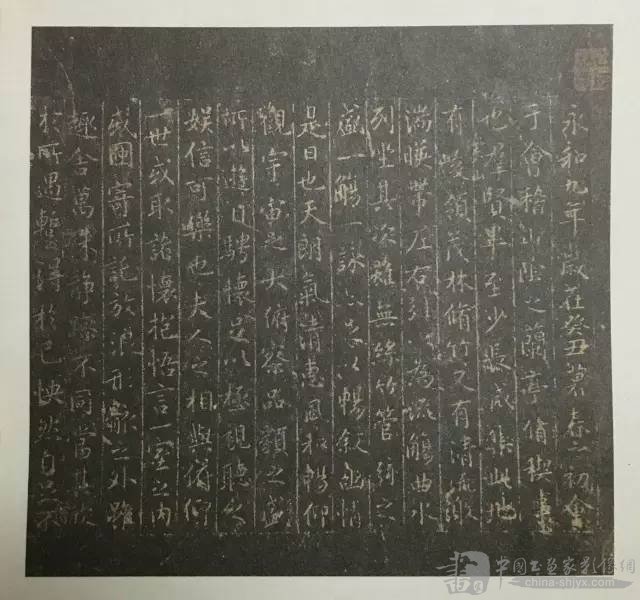 永和九年歲在癸丑暮春之初會
于會稽山陰之蘭亭脩禊事
也羣賢畢至少長咸集此地
有峻領茂林脩竹又有清流激
湍暎帶左右引以為流觴曲水
列坐其次雖無絲竹管弦之
盛一觴一詠亦足以暢敘幽情
是日也天朗氣清惠風和暢仰
觀宇宙之大俯察品類之盛
所以遊目騁懷足以極視聽之
娛信可樂也夫人之相與俯仰
一世或取諸懷抱悟言一室之內
或因寄所託放浪形骸之外雖
趣舍萬殊靜躁不同當其欣
於所遇暫得於己怏然自足不
中國書畫家影像網
china-shjyx.com